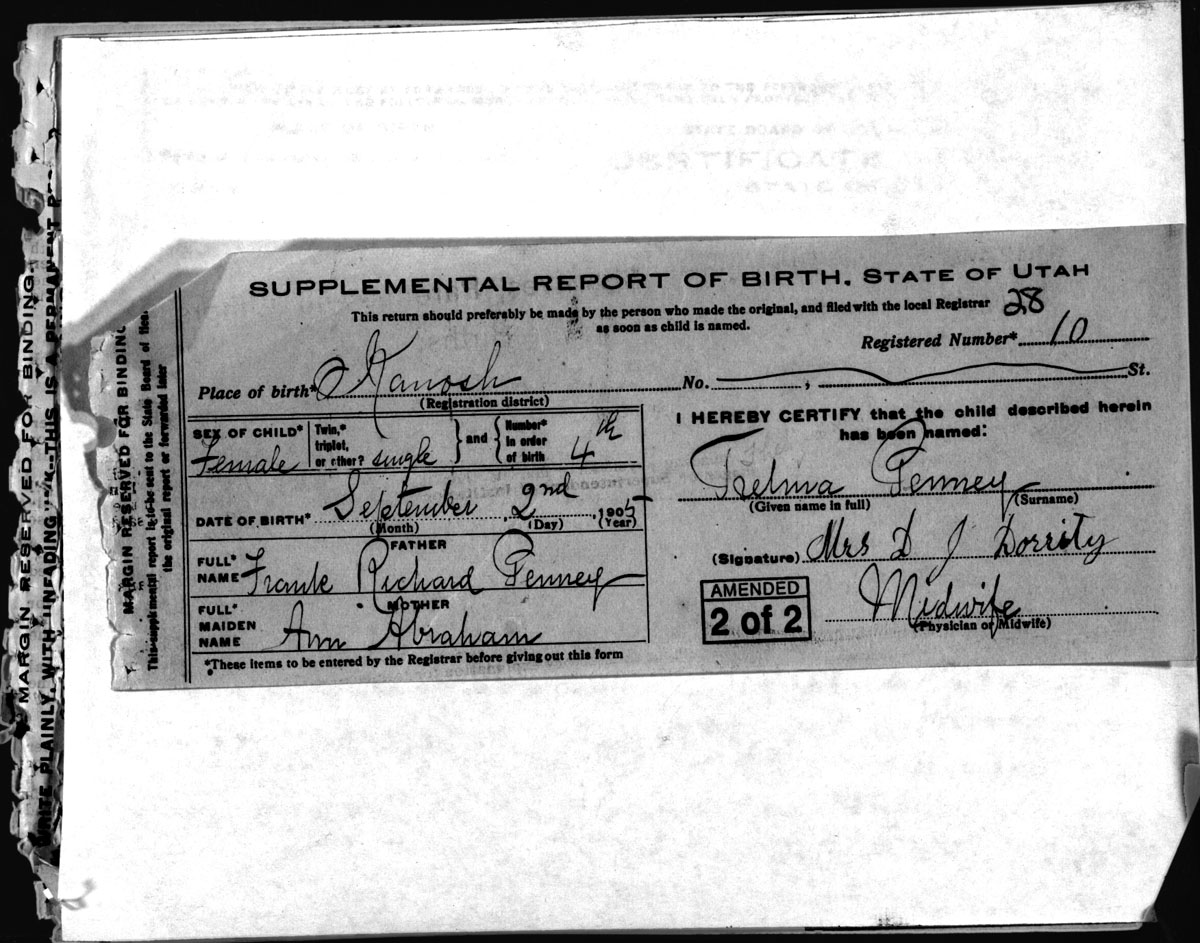 SUPPLEMENTAL REPORT OF BIRTH. STATE OF UTAH
This return should preferably be made by the person who made the original, and filed with the local Registrar
as soon as child is named.
28
Registered Number* 10
Place of birth* Kanosh No. , St.
(Registration district)
SEX OF CHILD* Female
Twin,* triplet, or other? single
and
Number* in order of birth 4th
DATE OF BIRTH* September 2nd, 1905
(Month) (Day) (Year)
FATHER
FULL* NAME Frank Richard Penney
MOTHER
FULL* MAIDEN NAME Ann Abraham
*These items to be entered by the Registrar before giving out this form
I HEREBY CERTIFY that the child described herein
has been named:
Thelma Penney
(Given name in full) (Surname)
(Signature) Mrs D J Dorrity
Midwife
(Physician or Midwife)
AMENDED
2 of 2
MARGIN RESERVED FOR BINDING
This supplemental report is to be sent to the State Board of
the original report or forwarded later
MARGIN RESERVED FOR BINDING.
WRITE PLAINLY, WITH UNFADING THIS IS A PERMANENT